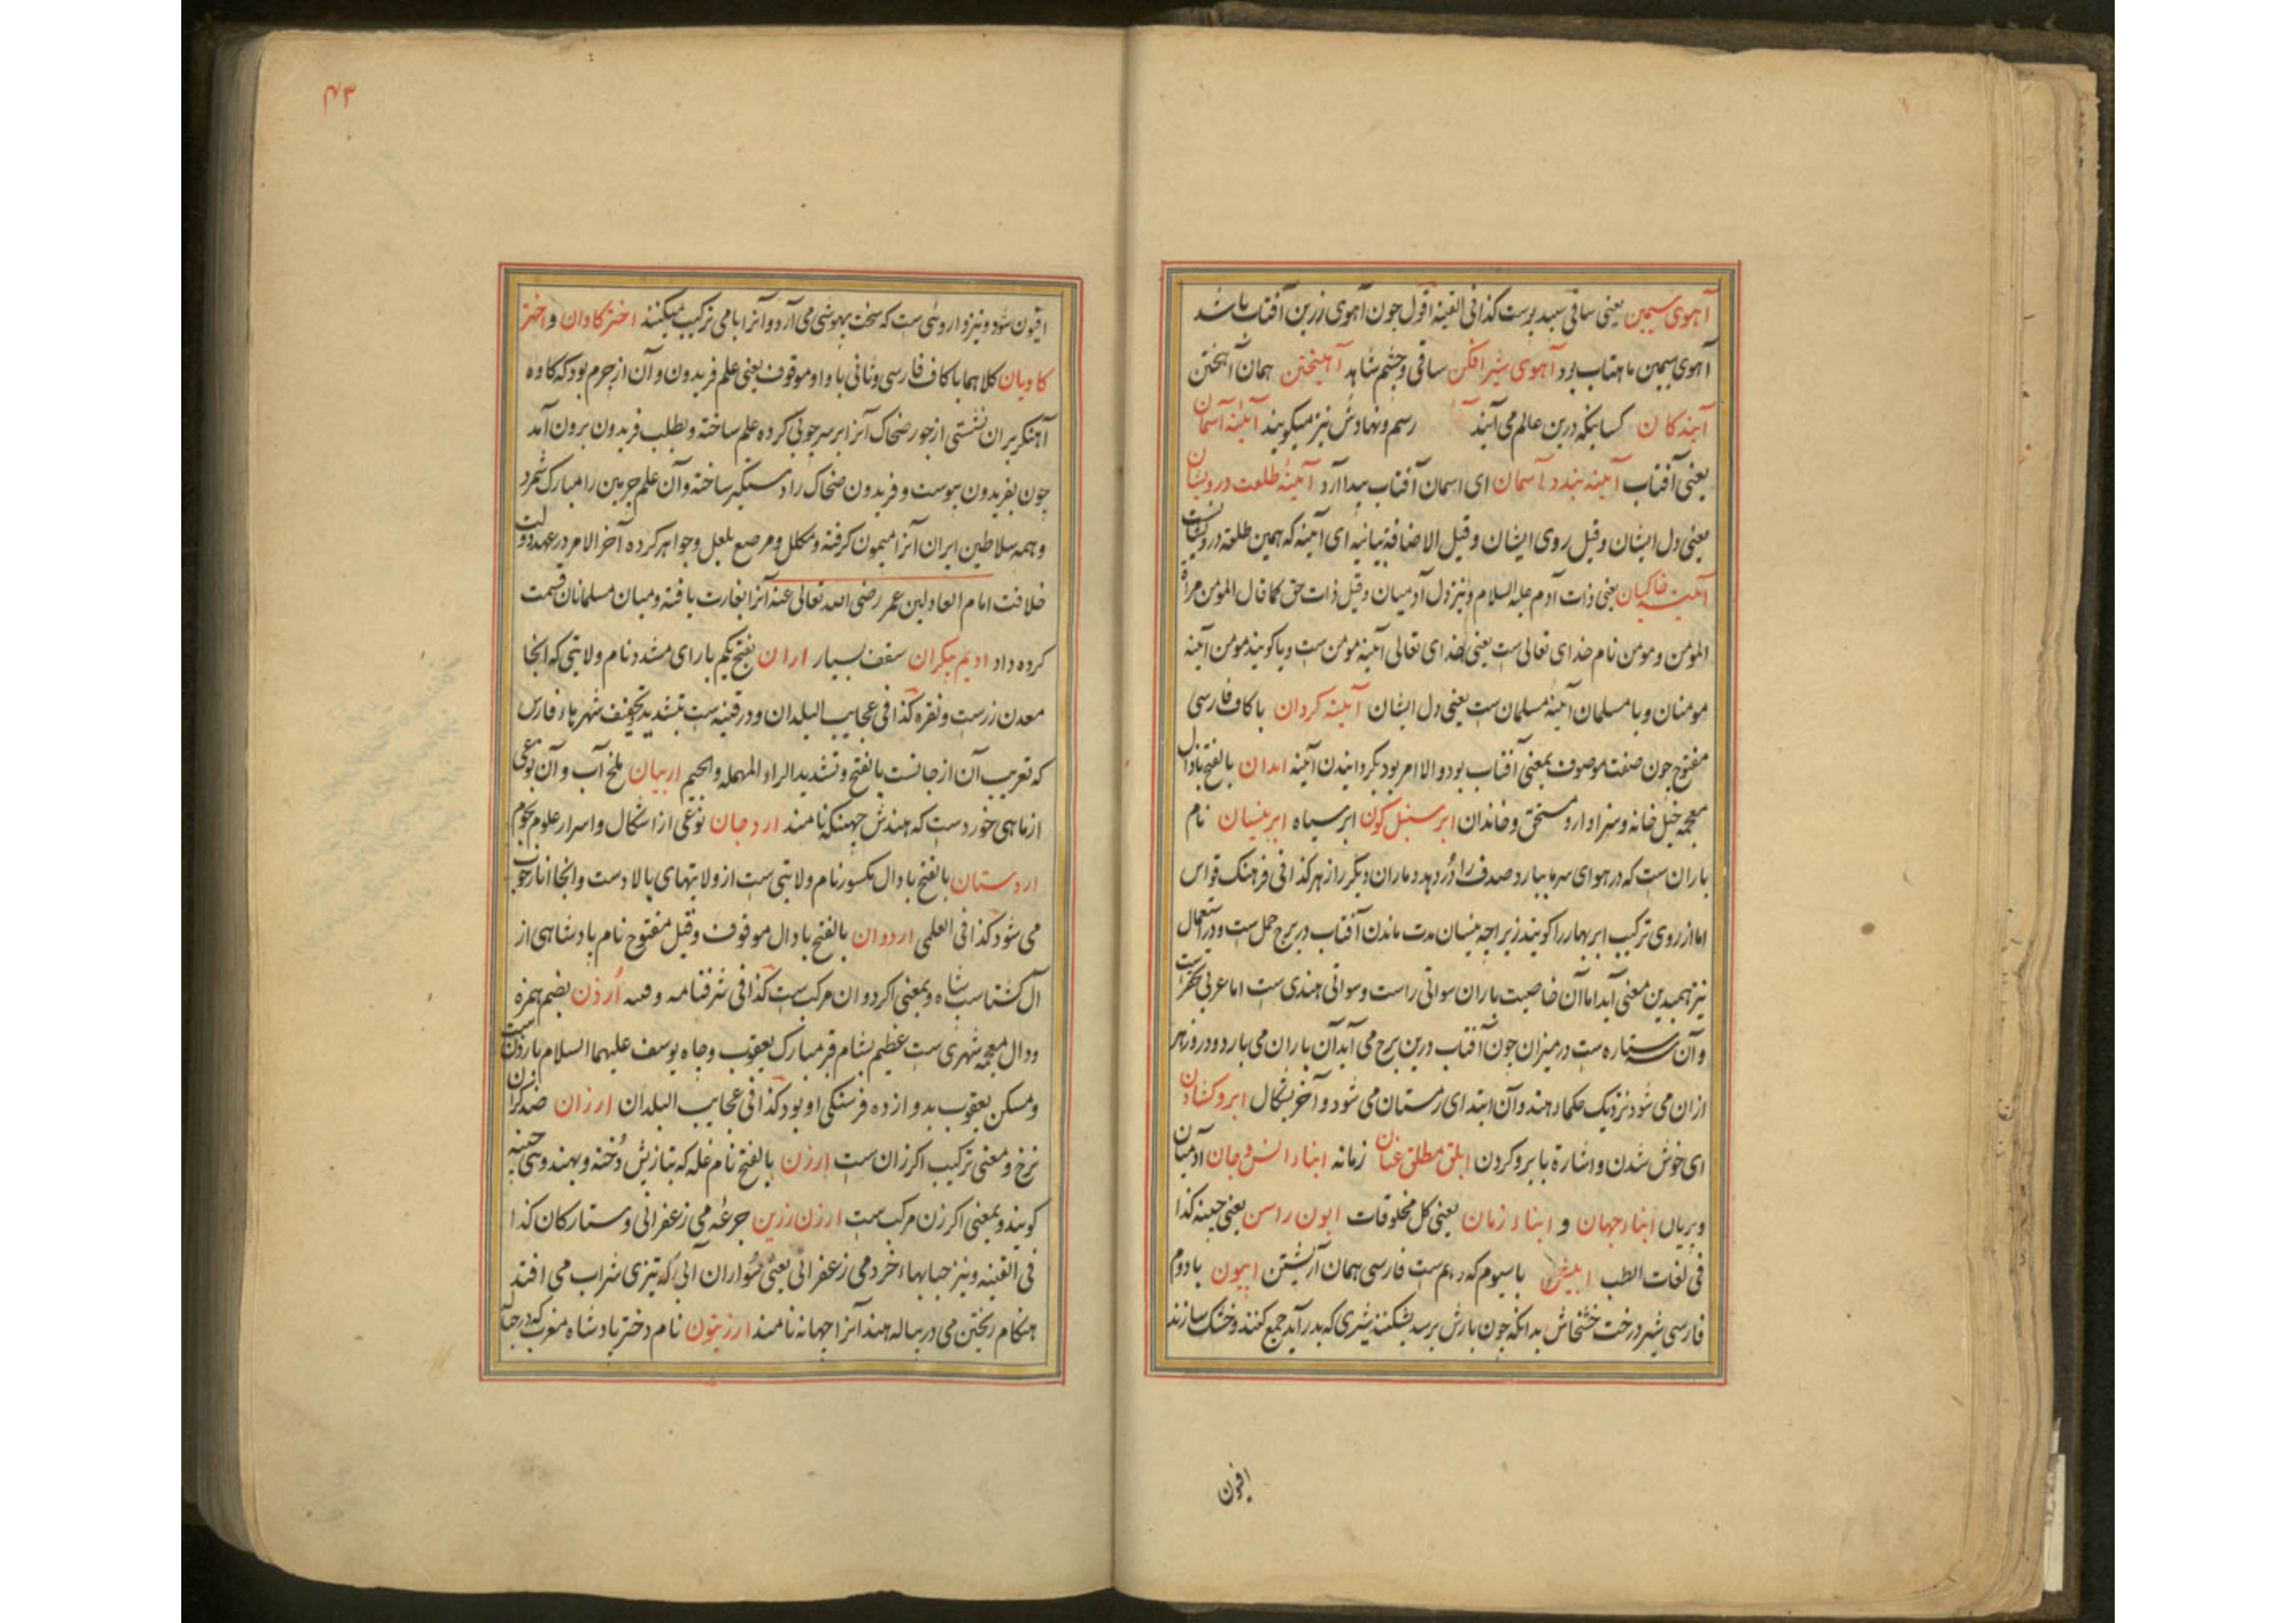 آهوی سیمین یعنی ساقی سپید پوست کذا فی القنیه اقول چون آهوی زرین آفتاب باشد
آهوی سیمین ماهتاب بود آهوی شیر افکن ساقی و چشم شاهد آهیختن همان آهنختن
آیندکان کسانیکه درین عالم می آیند رسم و نهادش نیز میکویند آئینه آسمان
یعنی آفتاب آئینه بندد آسمان ای اسمان آفتاب پیدا آرد آئینهٔ طلعت درویشان
یعنی دل ایشان و قیل روی ایشان و قیل الاضافة بیانیه ای آیینه که همین طلعت درویشانست
آئینه خاکیان یعنی ذات آدم علیه السلام و نیز دل آدمیان و قیل ذات حق کما قال المومن مرآة
المومن و مومن نام خدای تعالی ست یعنی خدای تعالی آینه مومن ست و یا کویند مومن آینه
مومنان و یا مسلمان آینهٔ مسلمان ست یعنی دل ایشان آیینه کردان با کاف فارسی
مفتوح چون صفت موصوف بمعنی آفتاب بود والا امر بود بکردانیدن آئینه ابدان بالفتح با دال
معجمه خیل خانه و سزاوار و مستحق و خاندان ابر سنبل کون ابر سیاه ابر نیسان نام
باران ست که در هوای سرما ببارد صدف را دُر دهد و ماران دیکر را زهر کذا فی فرهنک قواس
اما از روی ترکیب ابر بهار را کویند زیراچه نیسان مدت ماندن آفتاب در برج حمل ست و در استعمال
نیز بهمیدین معنی آید اما آن خاصیت باران سواتی راست و سواتی هندی ست اما عربی
و آن ستاره ست در میزان چون آفتاب درین برج می آید آن باران می بارد و در روز هر
ازان می شود نزدیک حکماء هند و آن ابتدای زمستان می شود و آخر بشکال ابرو کشادن
ای خوش شدن و اشارة بابرو کردن ابلق مطلق عنان زمانه ابناء انس و جان آدمیان
و پریان ابناء جهان و ابناء زمان یعنی کل مخلوقات ابون راسن یعنی کذا
فی لغات الطب با سیوم که دهم ست فارسی همان آرشیتن اپیون با دوم
فارسی شیر درخت خشخاش بدانکه چون بارش برسد بشکنند شیری که بدر آید جمع کنند و خشک سازند
افیون
۴۳
افیون شود و نیز داروئی ست که سخت بیهوشی می آرد و آنرا با می ترکیب میکنند اختر کاوان و اختر
کاویان کلاهما با کاف فارسی و ثانی با واو موقوف یعنی علم فریدون و آن از چرم بود که کاوه
آهنکر بران نشستی از جور ضحاک آنرا بر سر چوبی کرده علم ساخته و بطلب فریدون برون آمد
چون بفریدون پیوست و فریدون ضحاک را دستکیر ساخته و آن علم چرمین را مبارک شمرد
و همه سلاطین ایران آنرا میمون کرفته و مکلل و مرصع بلعل و جواهر کرده آخر الامر در عهد دولت
خلافت امام العادلین عمر رضی الله تعالی عنه آنرا بغارت یافته و میان مسلمانان قسمت
کرده داد ادیم پیکران سقف بسیار اران بفتح یکم با رای مشدد نام ولایتی که آنجا
معدن زرست و نقره کذا فی عجایب البلدان و در قنیه ست بتشدید و تخفیف شهر پاء فارس
که تعریب آن ارجانست بالفتح و تشدید الراء المهمله والجیم اربیان ملخ آب و آن نوعی
از ماهی خوردست که هندش جهینکه نامند ارد جان نوعی از اشکال و اسرار علوم نجوم
اردستان بالفتح با دال مکسور نام ولایتی ست از ولایتهای بالا دست و آنجا انار خوب
می شود کذا فی العلمی اردوان بالفتح با دال موقوف و قیل مفتوح نام بادشاهی از
آل کشتاسب شاه و بمعنی اکر دوان مرکب ست کذا فی شرفنامه و فیه اُرذن بضم همزه
و دال معجمه شهری ست عظیم بشام قبر مبارک یعقوب و چاه یوسف علیهما السلام باردن ست
و مسکن یعقوب بدوازده فرسنکی او بود کذا فی عجایب البلدان ارزان ضد کران
نرخ و معنی ترکیب اکر زان ست ارزن بالفتح نام غله که بتازیش دُخنه و بهندوی چینه
کویند و بمعنی اکر زن مرکب ست ارزن زرین جرعهٔ می زعفرانی و ستارکان کذا
فی القنیه و نیز حبابهاء خرد می زعفرانی یعنی سواران آبی که تیزی شراب می افتد
هنکام ریختن می در پیاله هند آنرا جهانه نامند ارزیتون نام دختر بادشاه مغرب که در حباله